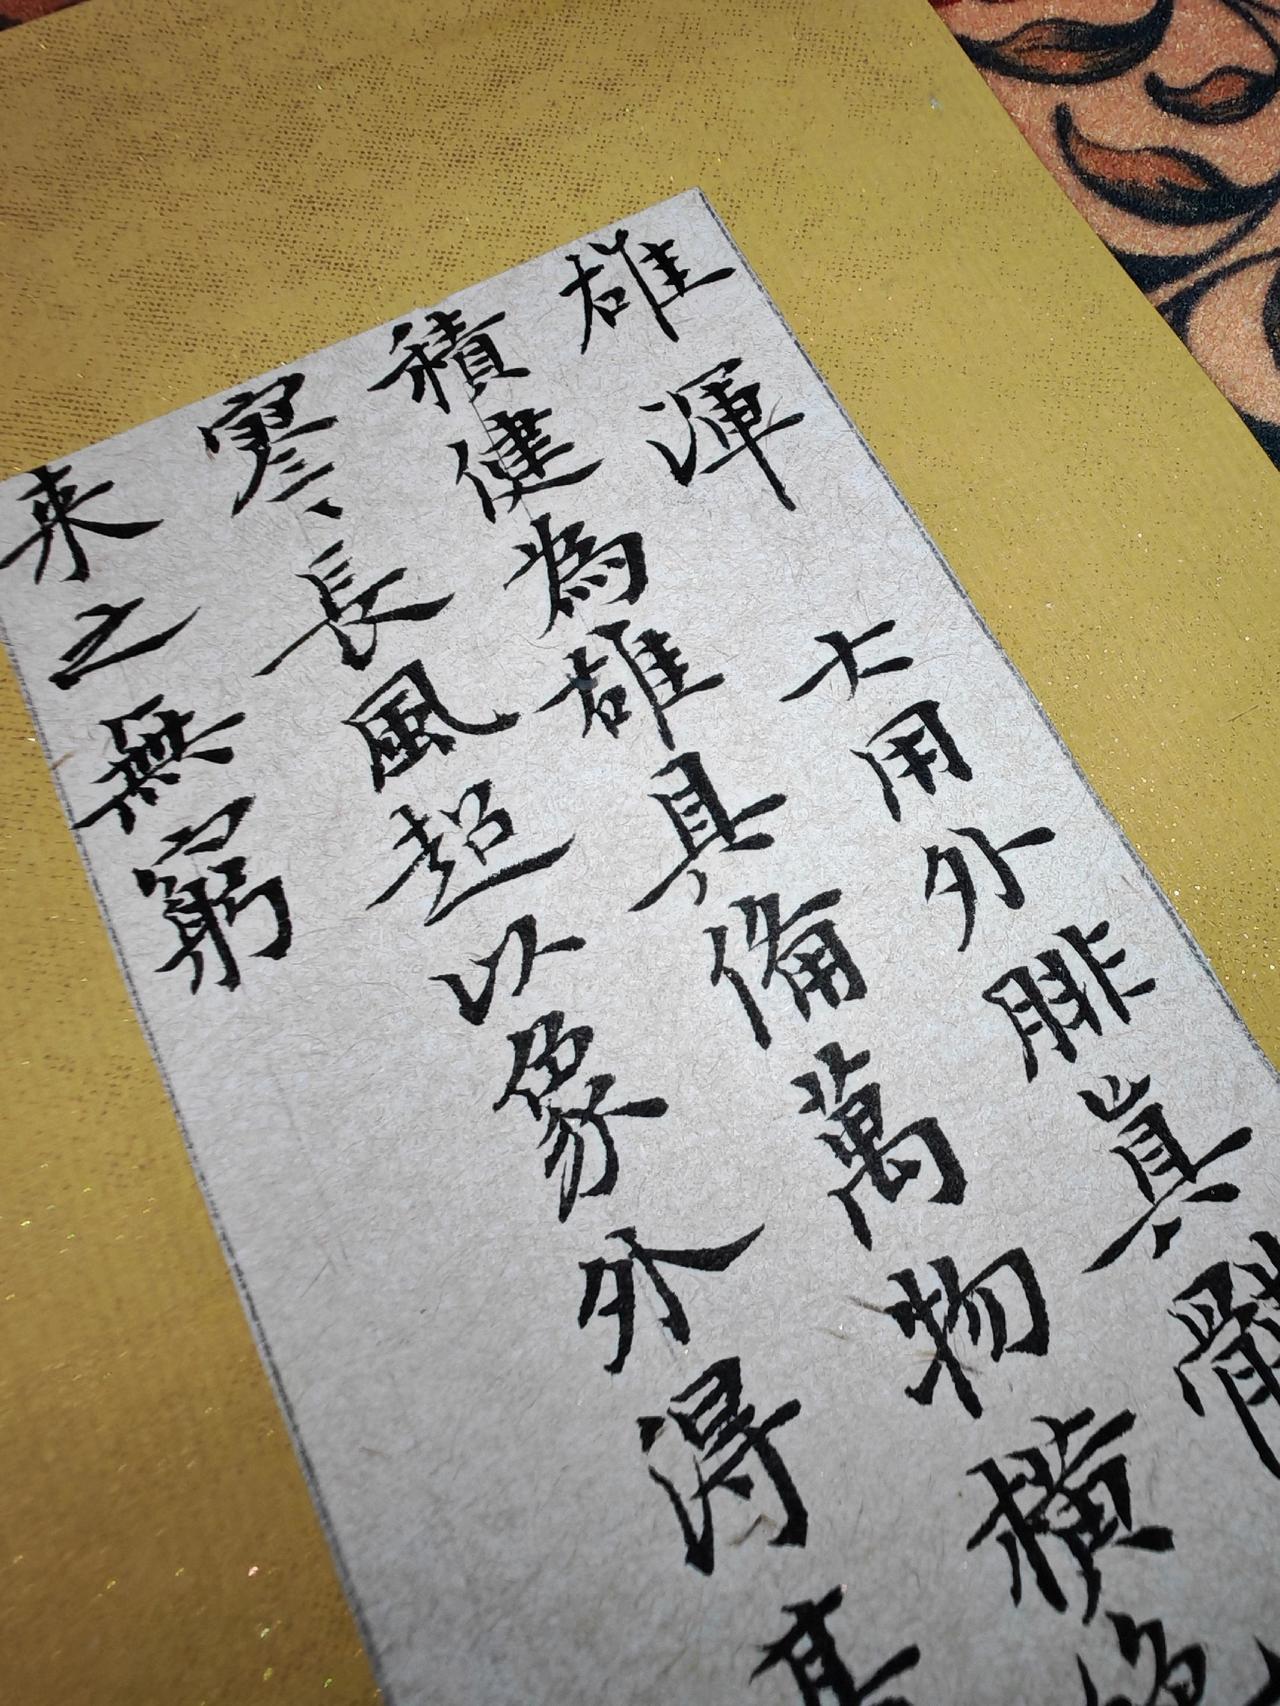 雄渾 大用外腓真體
積健為雄具備萬物橫
寥〻長風超以象外得其
来之無窮